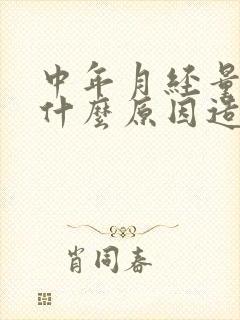 中年月经量
什麼原因造
肖同春